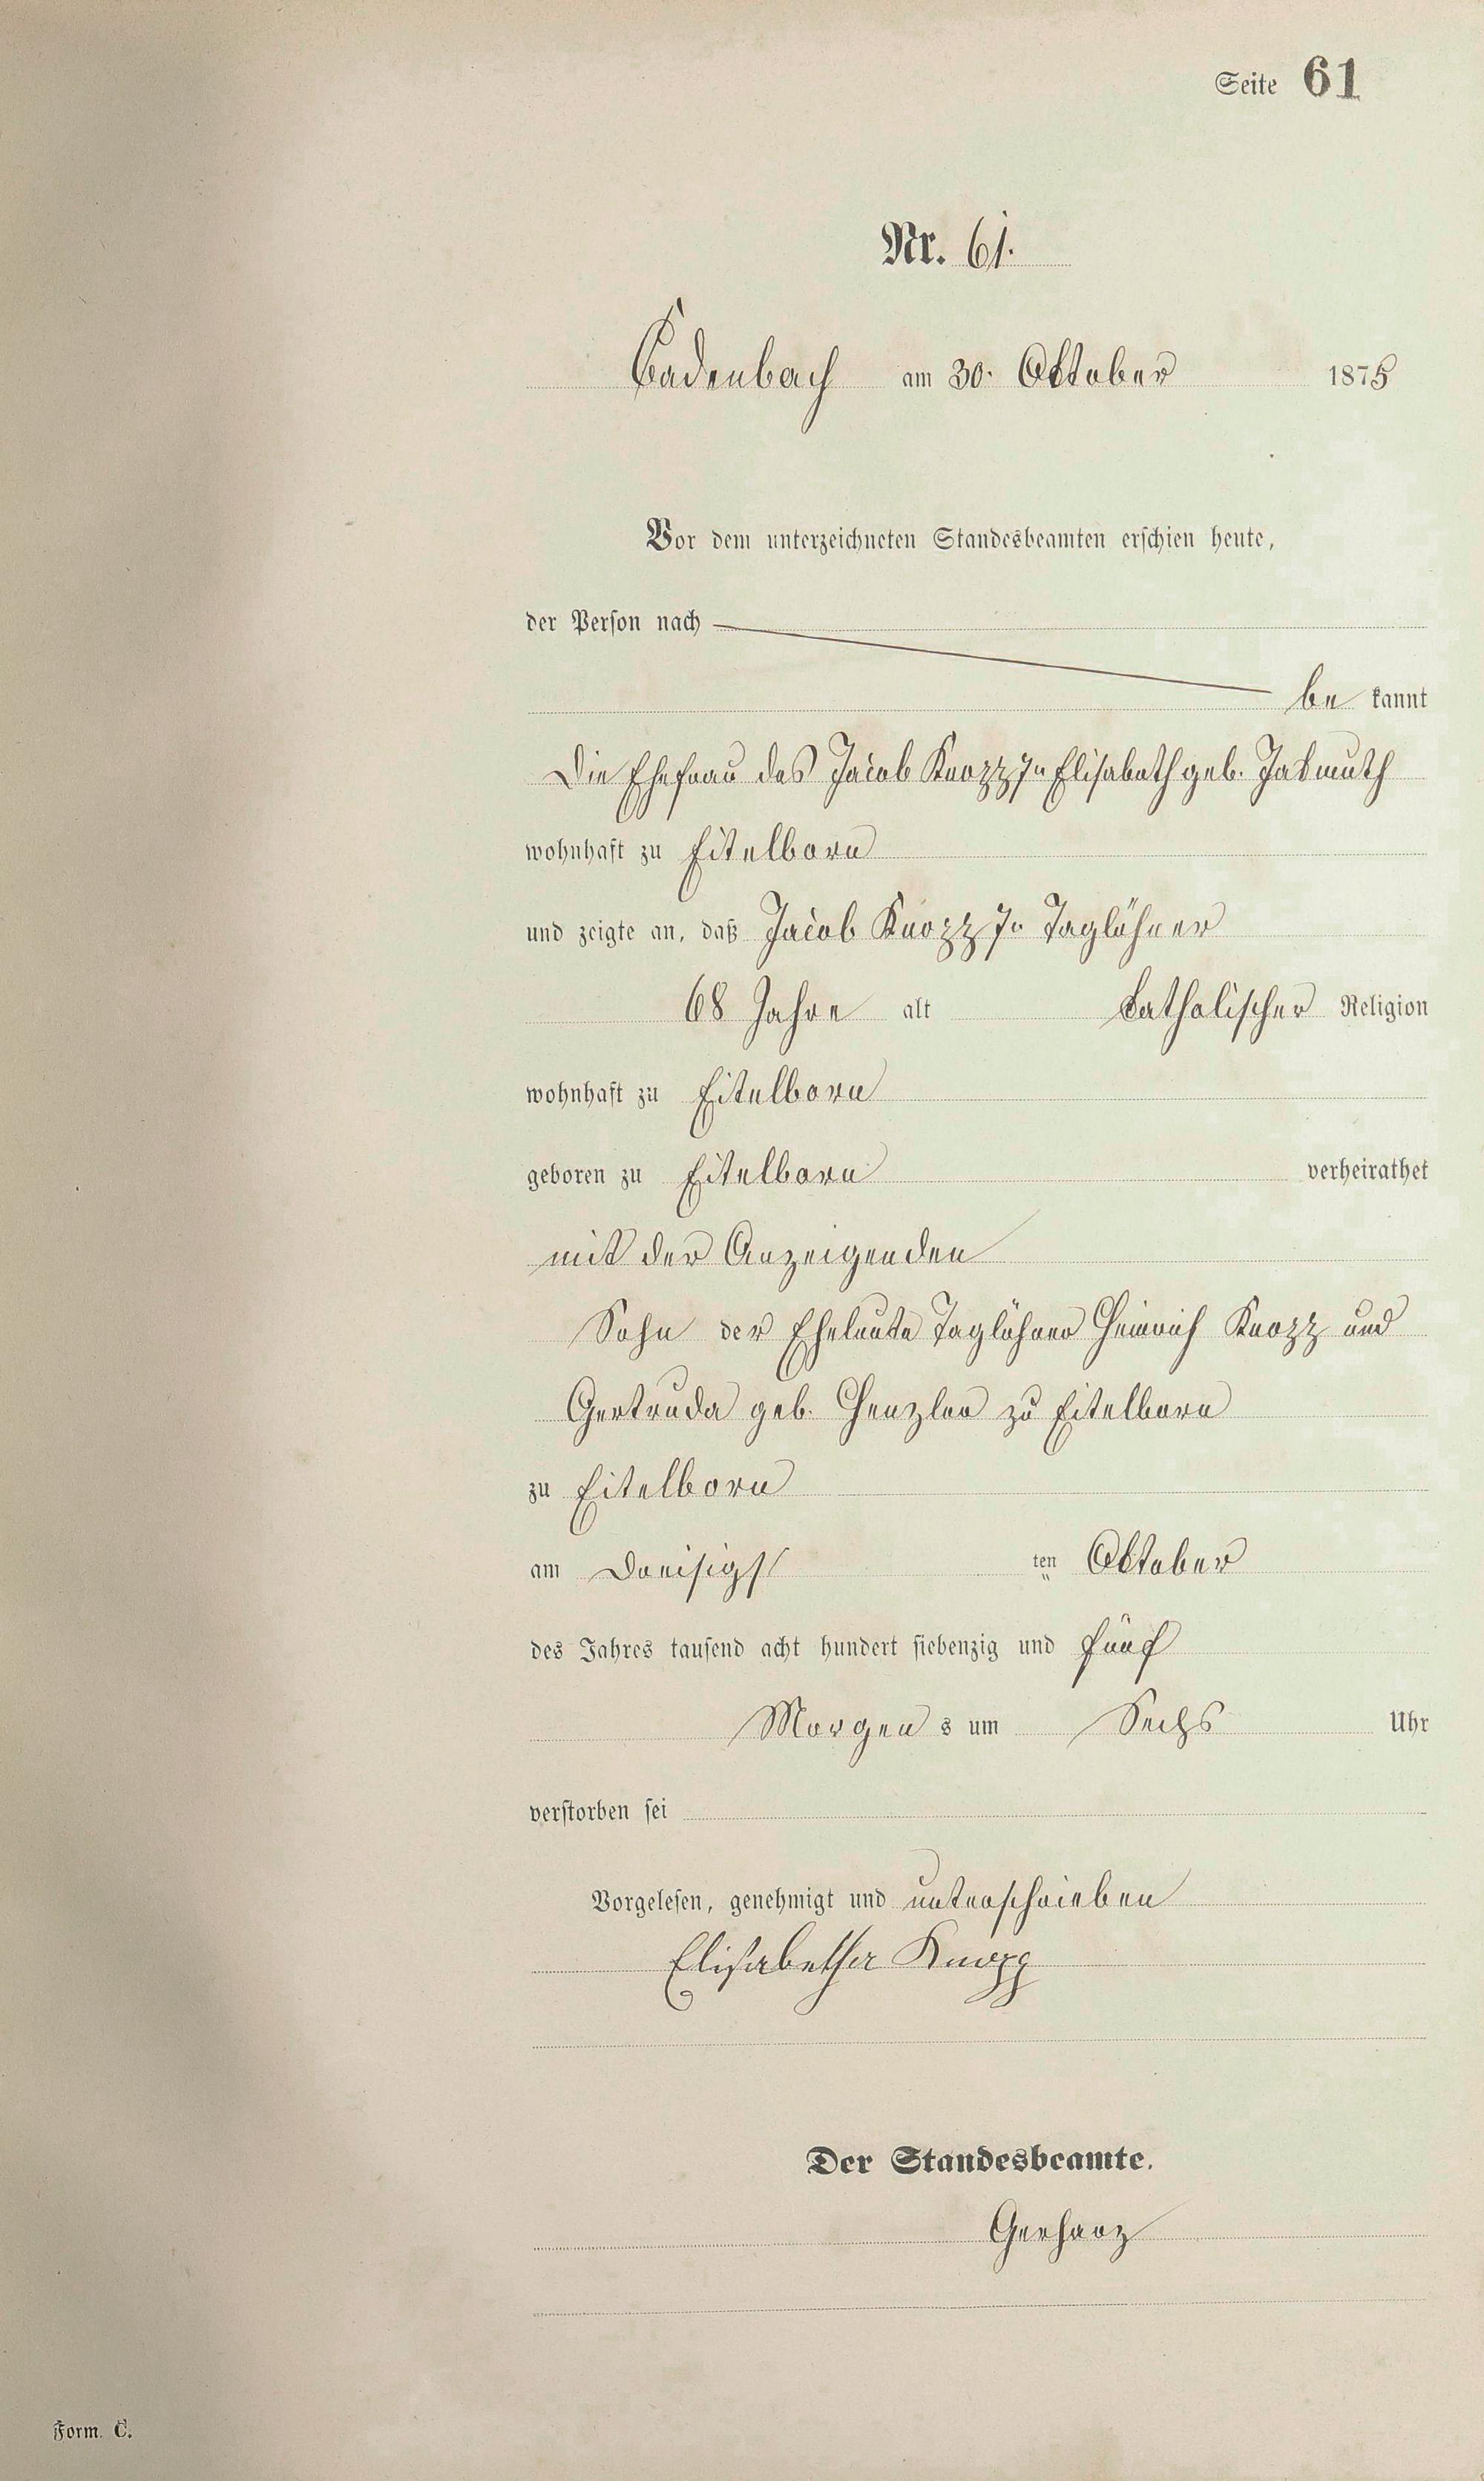 Seite 61
Nr. 61.
Cadenbach am 30. Oktober 1875
Vor dem unterzeichneten Standesbeamten erschien heute,
der Person nach
be kannt
Die Ehefrau des Jacob Knopp Elisabeth geb. Jakmuth
wohnhaft zu Eitelborn
und zeigte an, daß Jacob Knopp Taglöhner
68 Jahre alt katholischer Religion
wohnhaft zu Eitelborn
geboren zu Eitelborn verheirathet
mit der Anzeigenden
Sohn der Eheleute Taglöhner Heinrich Knopp und
Gertruda geb. Henzler zu Eitelborn
zu Eitelborn
am Dreisigst ten Oktober
des Jahres tausend acht hundert siebenzig und fünf
Morgen s um Sechs Uhr
verstorben sei
Vorgelesen, genehmigt und unterschrieben
Elisabetha Knopp
Der Standesbeamte.
Gerharz
Form. C.